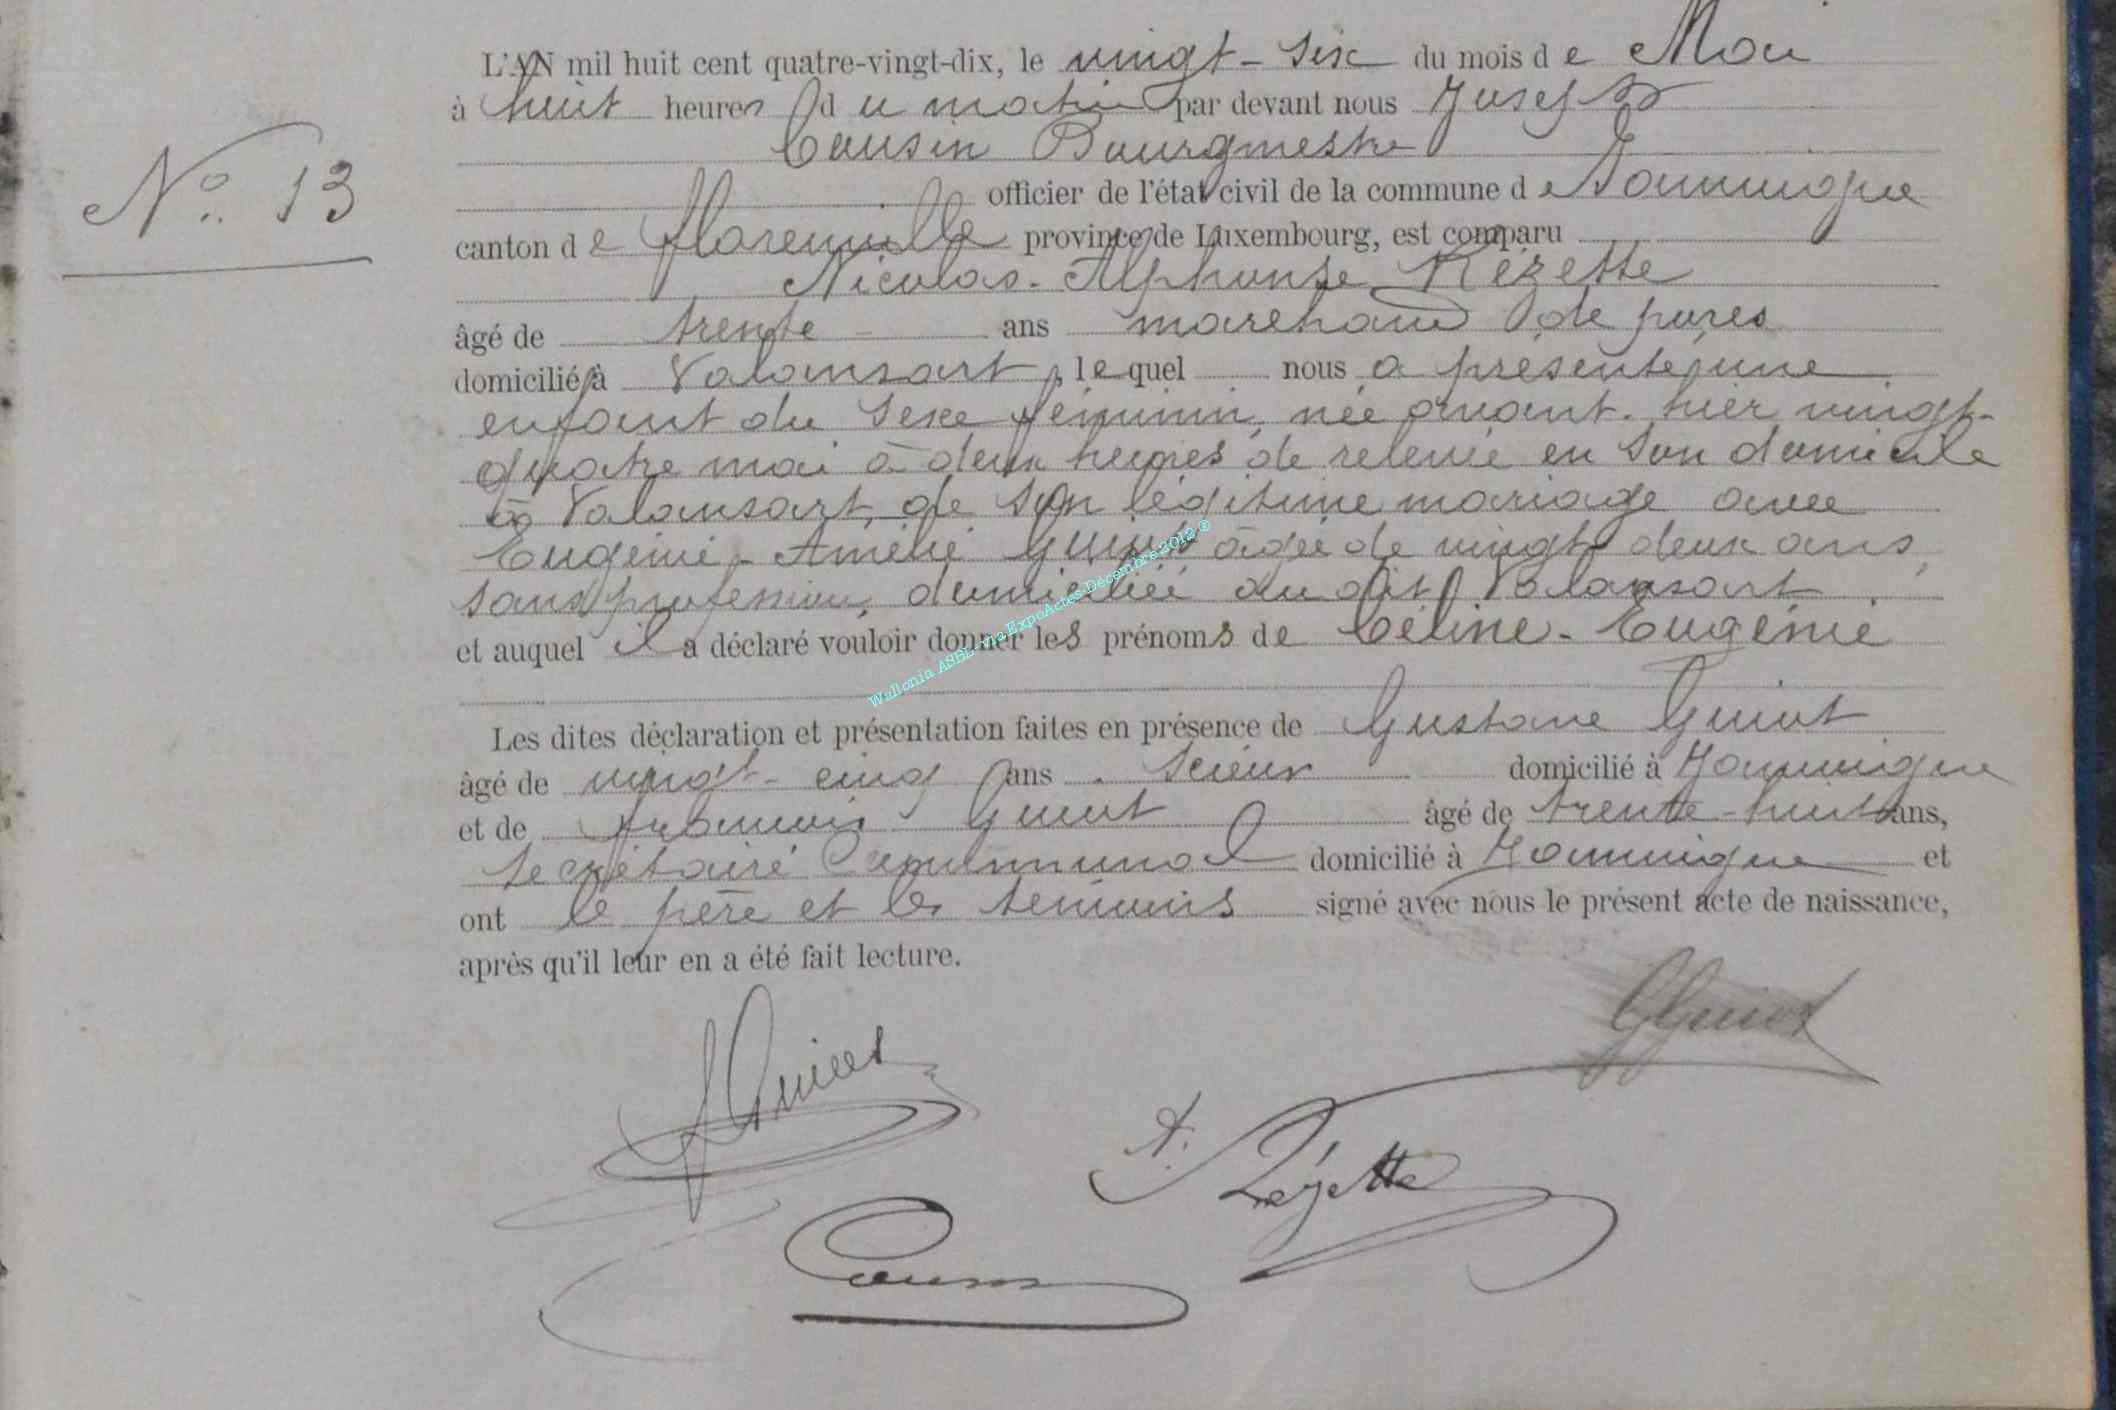 L'AN mil huit cent quatre-vingt-dix, le vingt-six du mois de Mai
à huit heures du matin par devant nous Joseph
Cousin Bourgmestre
officier de l'état civil de la commune de Jamoigne
canton de Florenville province de Luxembourg, est comparu
Nicolas-Alphonse Rézette
âgé de trente ans marchand de porcs
domicilié à Valansart, lequel nous a présenté une
enfant du sexe féminin, née avant-hier vingt-
quatre mai à deux heures de relevée en son domicile
à Valansart, de son légitime mariage avec
Eugénie-Amélie Guiot âgée de vingt deux ans,
sans profession, domiciliée au dit Valansart.
et auquel il a déclaré vouloir donner les prénoms de Céline-Eugénie
Les dites déclaration et présentation faites en présence de Gustave Guiot
âgé de vingt-cinq ans scieur domicilié à Jamoigne
et de François Guiot âgé de trente-huit ans,
secrétaire Communal domicilié à Jamoigne et
ont le père et les témoins signé avec nous le présent acte de naissance,
après qu'il leur en a été fait lecture.
No. 13
GGuiot
FGuiot
A. Rézette
Cousin
Wallonia ASBL via ExpoActes Décembre 2012 ®